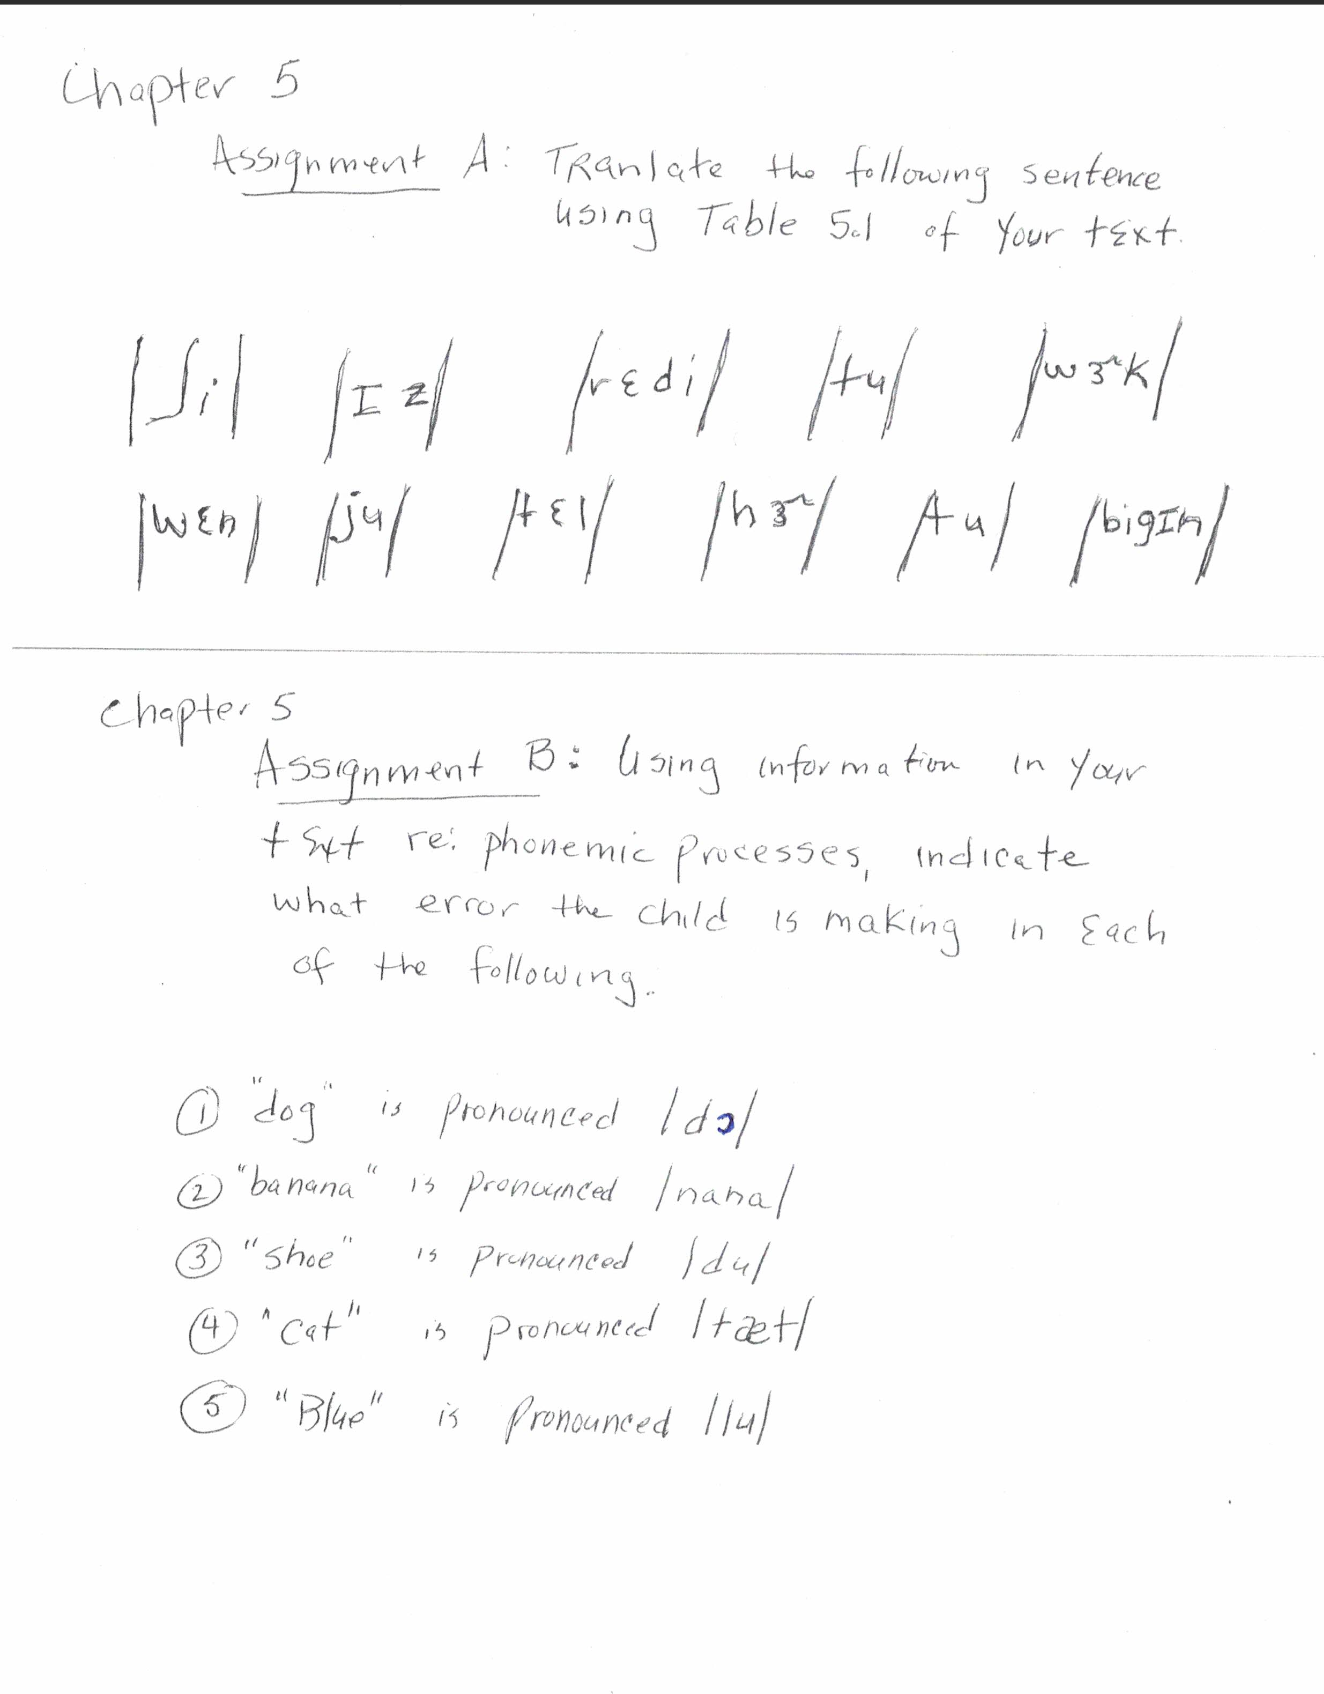 Chapter 5
Assignment A: Tranlate the following sentence
using Table 5.1 of your text.
/ʃi/ /Iz/ /rɛdi/ /tu/ /wɝk/
/wɛn/ /ju/ /tɛl/ /hɝ/ /tu/ /bigIn/
Chapter 5
Assignment B: Using information in your
text re: phonemic processes, indicate
what error the child is making in Each
of the following.
① "dog" is pronounced /dɔ/
② "banana" is pronounced /nana/
③ "shoe" is pronounced /du/
④ "cat" is pronounced /tæt/
⑤ "Blue" is pronounced /lu/